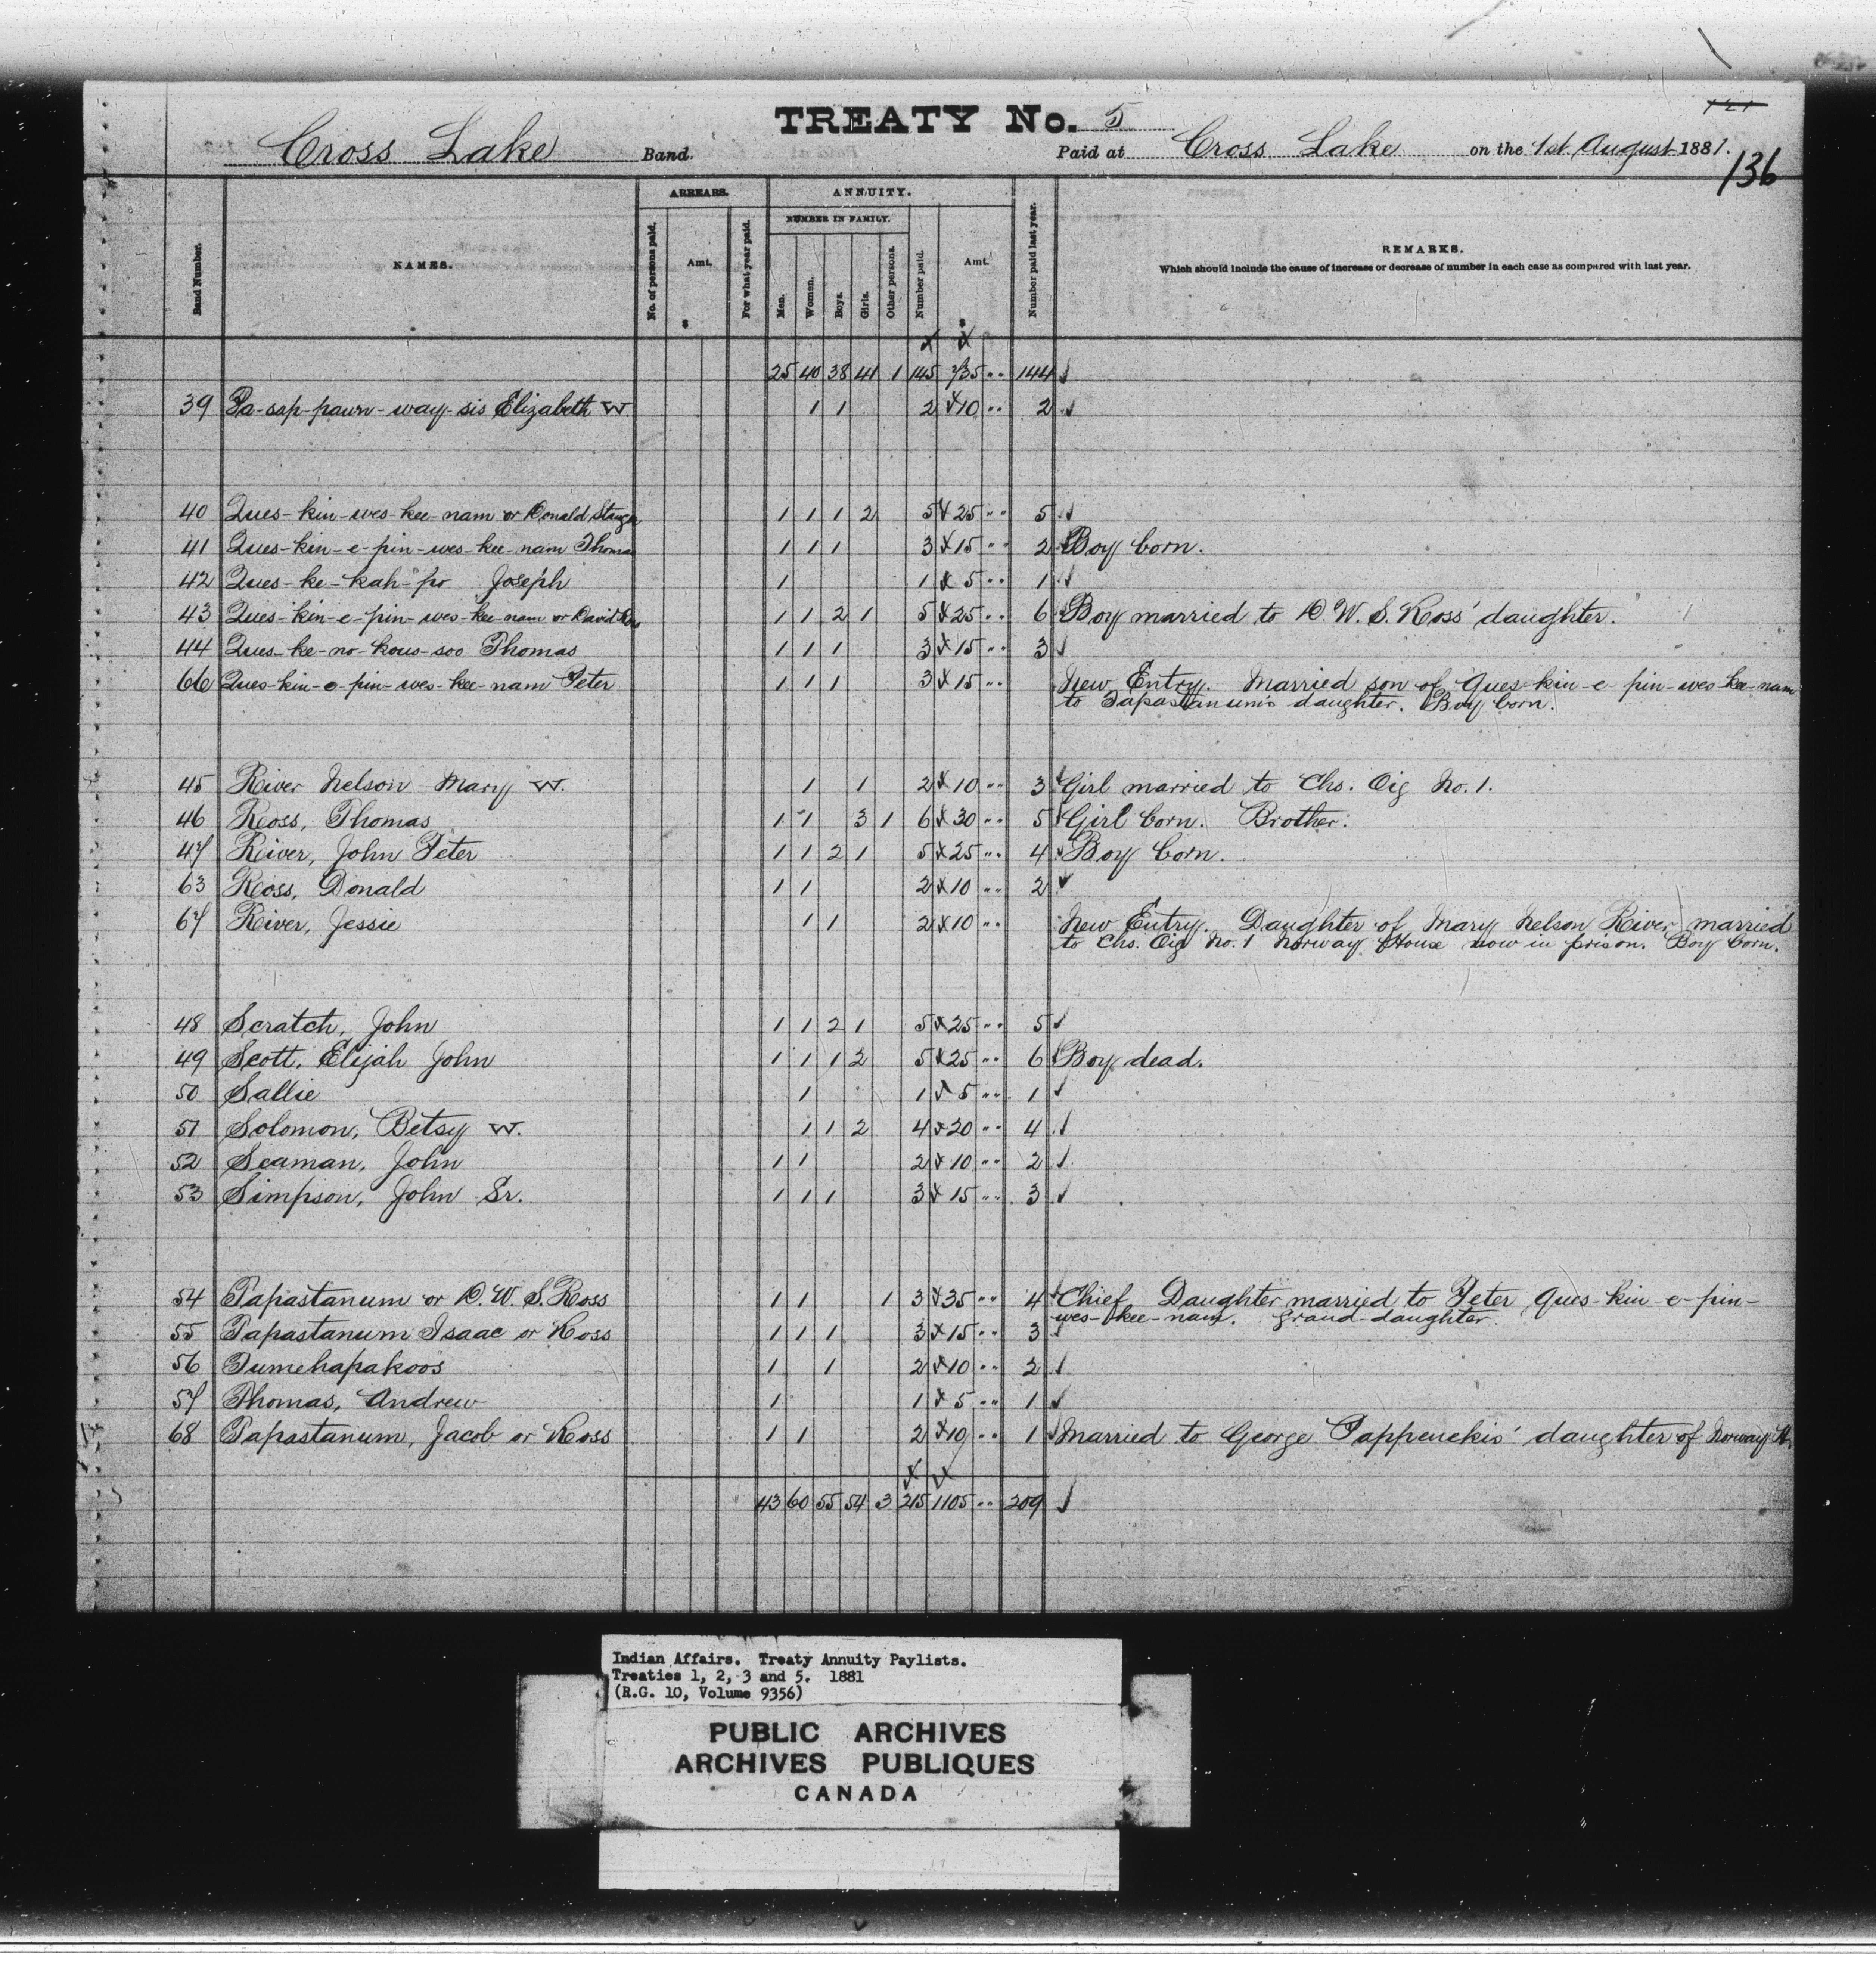 TREATY No. 5
Cross Lake Band. Paid at Cross Lake on the 1st August 1881.
136
Band Number. NAMES. ARREARS. No. of persons paid. Amt. $ For what year paid. ANNUITY. NUMBER IN FAMILY. Men. Women. Boys. Girls. Other persons. Number paid. Amt. $ Number paid last year. REMARKS.
Which should include the cause of increase or decrease of number in each case as compared with last year.
25 40 38 41 1 145 735 " 144
39 Pa-sap-pawn-way-sis Elizabeth W 1 1 2 10 " 2
40 Ques-kin-wes-kee-nam or Donald 1 1 1 2 5 25 " 5
41 Ques-kin-e-pin-wes-kee-nam Thomas 1 1 1 3 15 " 2 Boy born.
42 Ques-ke-kah-po Joseph 1 1 5 " 1
43 Ques-kin-e-pin-wes-kee-nam or David 1 1 2 1 5 25 " 6 Boy married to D. W. S. Ross' daughter.
44 Ques-ke-no-kous-soo Thomas 1 1 1 3 15 " 3
66 Ques-kin-e-pin-wes-kee-nam Peter 1 1 1 3 15 " New Entry. Married son of Ques-kin-e-pin-wes-kee-nam
to Tapastanum's daughter. Boy born.
45 River Nelson Mary W. 1 1 2 10 " 3 Girl married to Chs. Oig No. 1.
46 Ross, Thomas 1 1 3 1 6 30 " 5 Girl born. Brother.
47 River, John Peter 1 1 2 1 5 25 " 4 Boy born.
63 Ross, Donald 1 1 2 10 " 2
67 River, Jessie 1 1 2 10 " New Entry. Daughter of Mary Nelson River married
to Chs. Oig No. 1 Norway House now in prison. Boy born.
48 Scratch, John 1 1 2 1 5 25 " 5
49 Scott, Elijah John 1 1 1 2 5 25 " 6 Boy dead.
50 Sallie 1 1 5 " 1
51 Solomon, Betsy W. 1 1 2 4 20 " 4
52 Seaman, John 1 1 2 10 " 2
53 Simpson, John Sr. 1 1 1 3 15 " 3
54 Tapastanum or D. W. S. Ross 1 1 1 3 35 " 4 Chief Daughter married to Peter Ques-kin-e-pin-
wes-kee-nam. Grand-daughter.
55 Tapastanum Isaac or Ross 1 1 1 3 15 " 3
56 Tumehapakoos 1 1 2 10 " 2
57 Thomas, Andrew 1 1 5 " 1
68 Tapastanum, Jacob or Ross 1 1 2 10 " 1 Married to George Pappenekis' daughter of Norway H.
43 60 55 54 3 215 1105 " 209
Indian Affairs. Treaty Annuity Paylists.
Treaties 1, 2, 3 and 5. 1881
(R.G. 10, Volume 9356)
PUBLIC ARCHIVES
ARCHIVES PUBLIQUES
CANADA